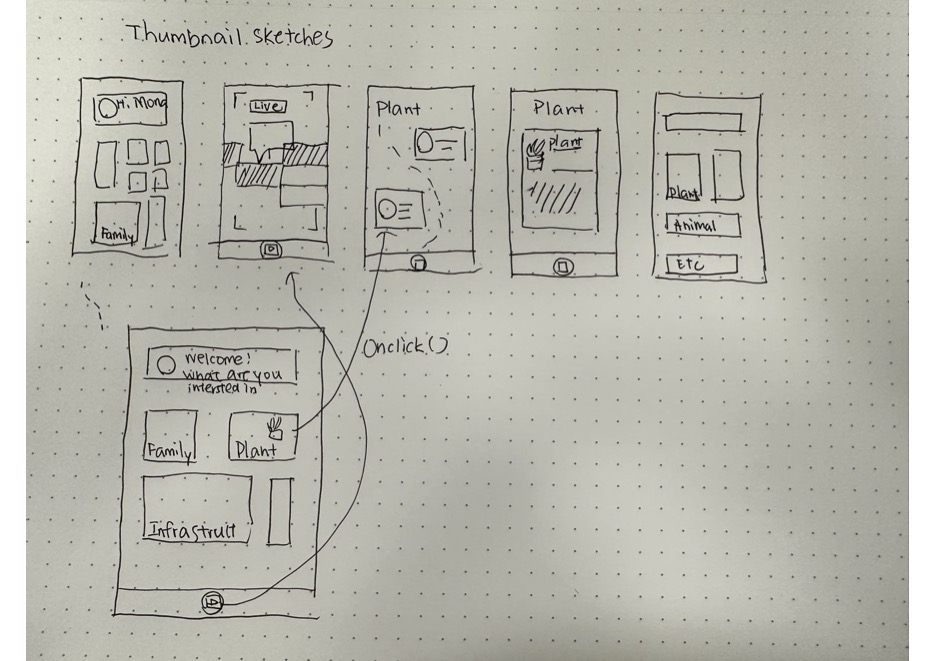 Thumbnail sketches
Hi. Mong
Family
Live
Plant
Plant
Plant
Plant
Animal
Etc
Welcome!
What are you
intersted in
Family
Plant
Infrastruct
Onclick()